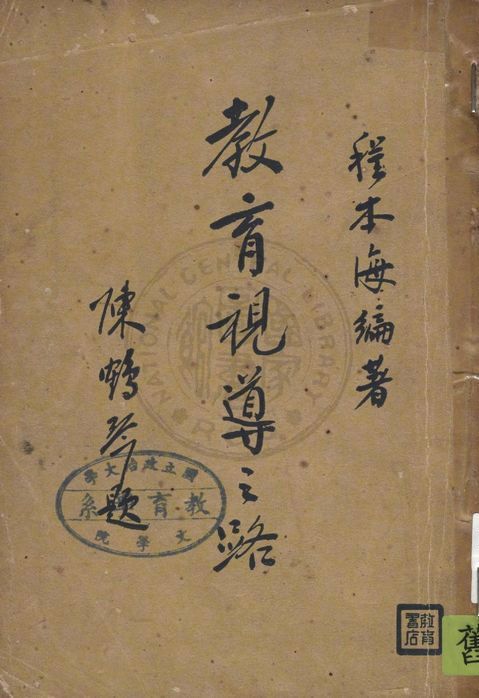 程本海編著
教育視導之路
陳鶴琴題
國立政治大學
教育系
文學院
NATIONAL CENTRAL LIBRARY
教育書店
舊